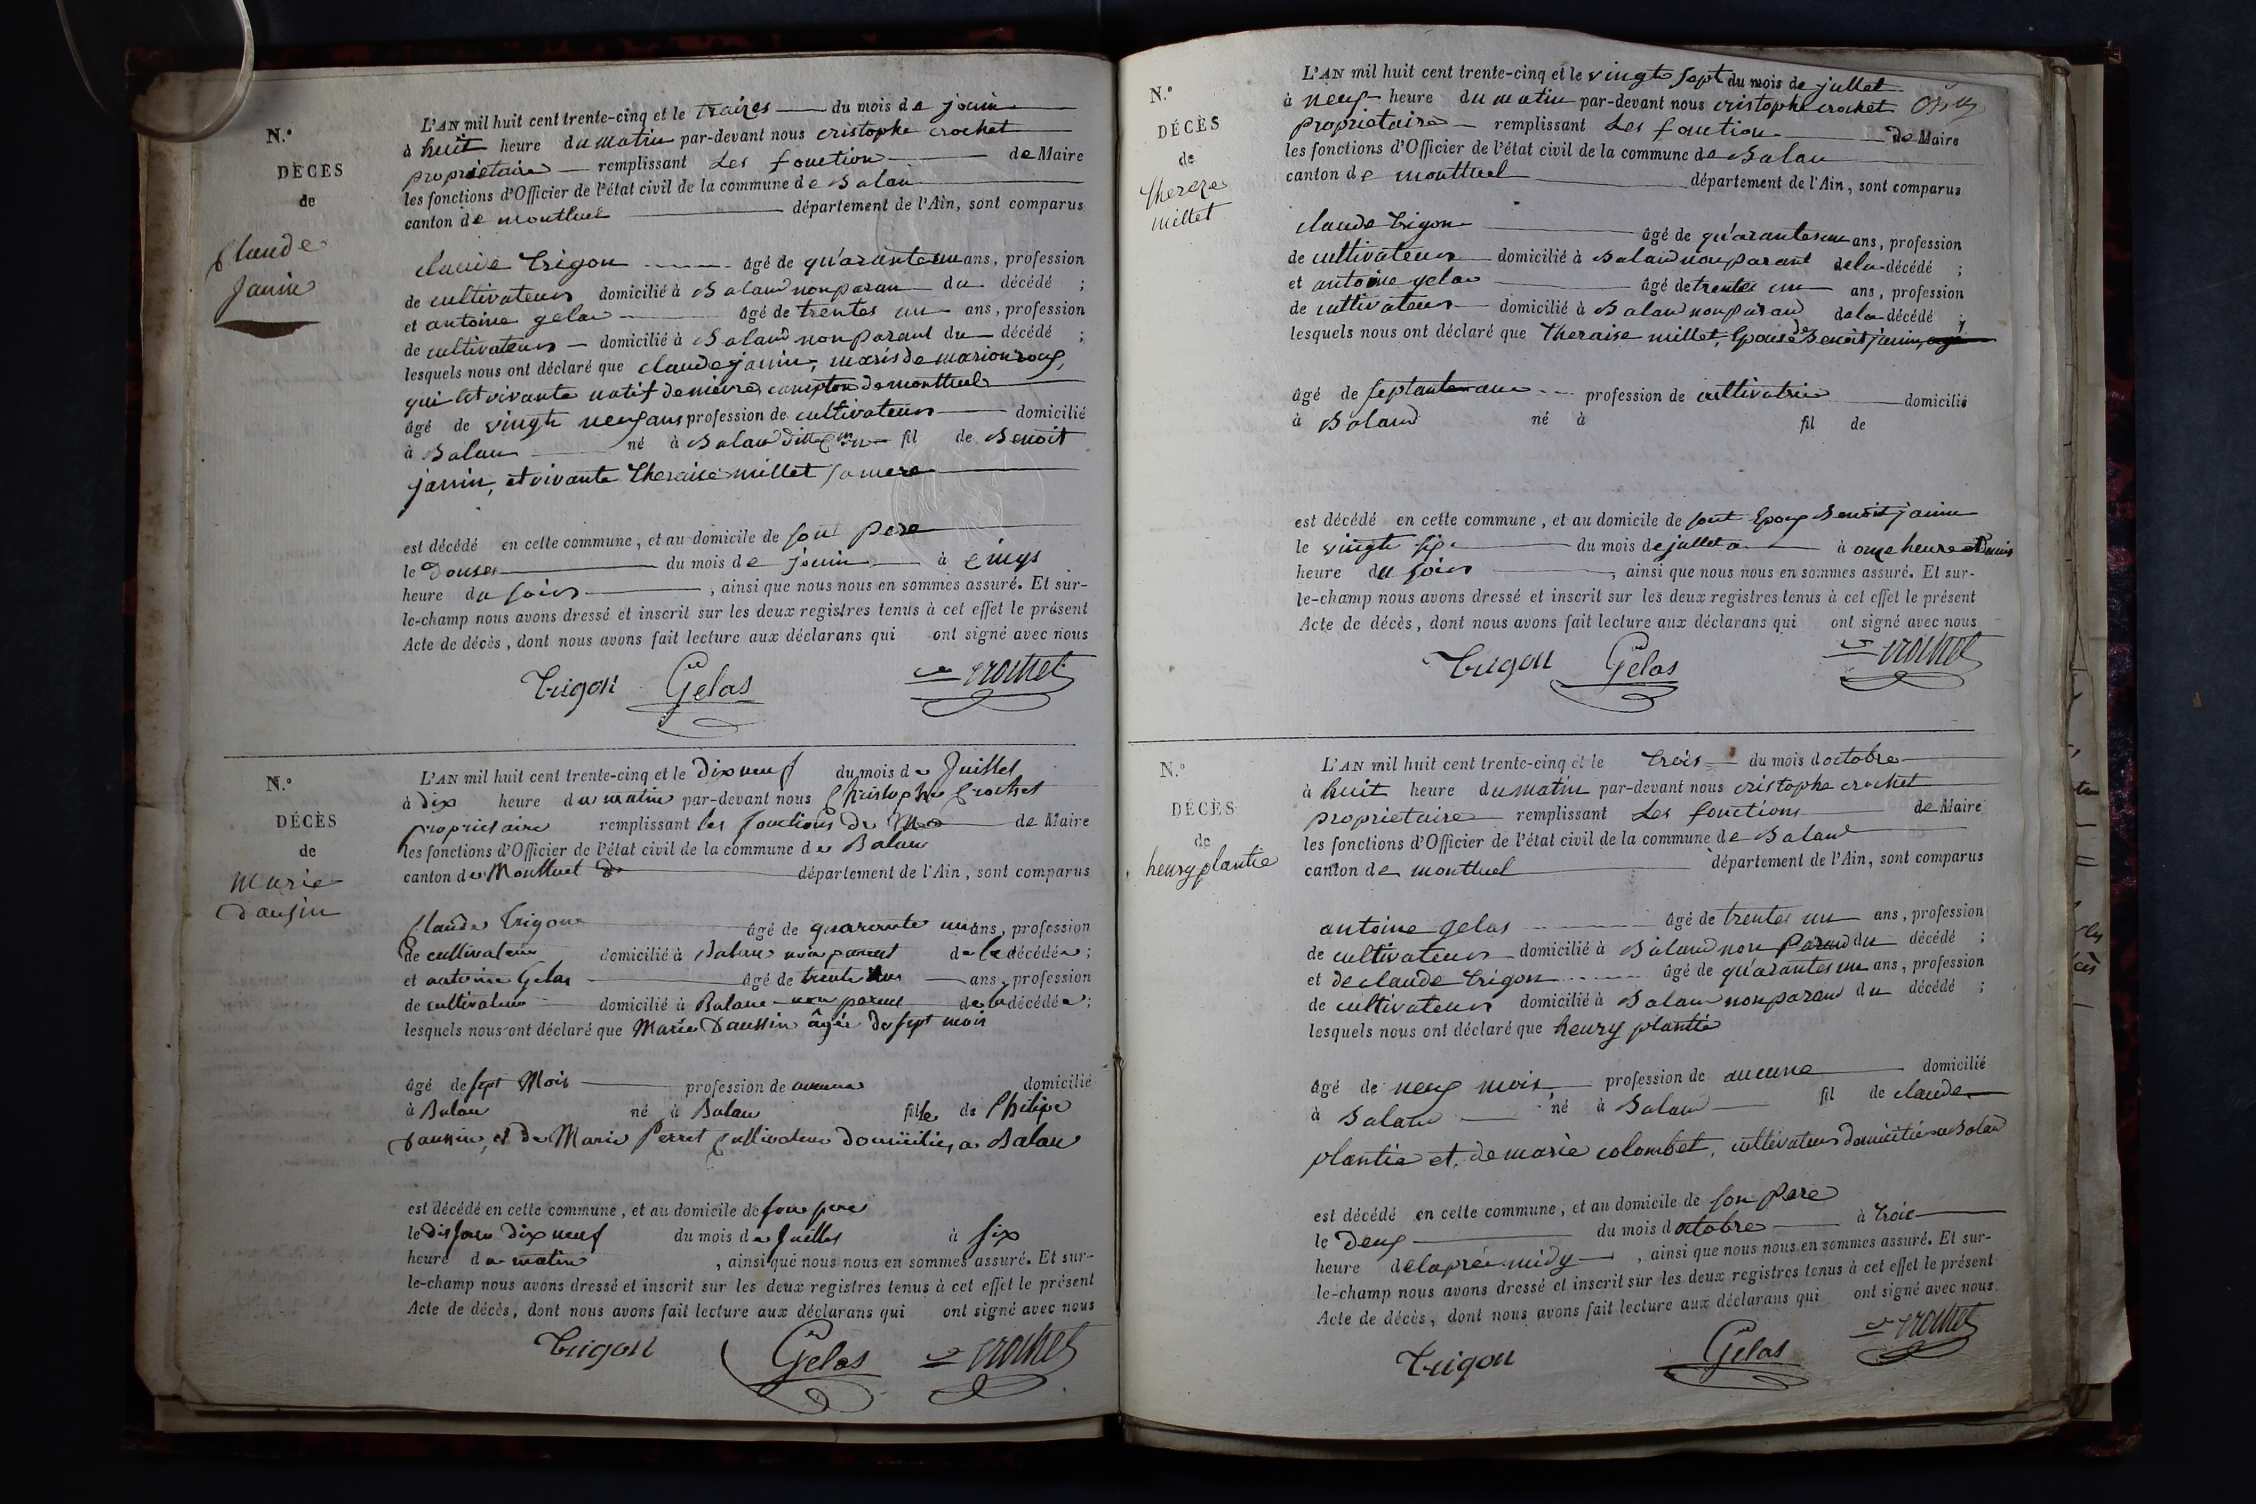 N.º
DÉCÈS
de
Claude
Janin
L'AN mil huit cent trente-cinq et le traizes du mois de jouin
à huit heure du matin par-devant nous cristophe crochet
propriétaire remplissant Les fonction de Maire
les fonctions d'Officier de l'état civil de la commune de Balan
canton de montluel département de l'Ain, sont comparus
claude trigon âgé de qu'arantes un ans, profession
de cultivateurs domicilié à Baland non paran du décédé ;
et antoine gelas âgé de trentes un ans, profession
de cultivateurs domicilié à Baland non parant du décédé ;
lesquels nous ont déclaré que claude janin, maris de marion
qui Est vivante natif de canton de montluel
âgé de vingt neuf ans profession de cultivateurs domicilié
à Balan né à Balan fil de Benoit
janin, et vivante theraise millet sa mere
est décédé en cette commune, et au domicile de son pere
le douses du mois de jouin à cinqs
heure du soirs , ainsi que nous nous en sommes assuré. Et sur-
le-champ nous avons dressé et inscrit sur les deux registres tenus à cet effet le présent
Acte de décès, dont nous avons fait lecture aux déclarans qui ont signé avec nous
trigon Gelas crochet
N.º
DÉCÈS
de
Marie
Daussin
L'AN mil huit cent trente-cinq et le dix neuf du mois de Juillet
à dix heure du matin par-devant nous Christophe Crochet
propriétaire remplissant les fonctions de Maire
les fonctions d'Officier de l'état civil de la commune de Balan
canton de Montluel département de l'Ain, sont comparus
Claude Trigon âgé de quarante un ans, profession
de cultivateur domicilié à Balan non parent de la décédée ;
et antoine Gelas âgé de trente un ans, profession
de cultivateur domicilié à Balan non parent de la décédée ;
lesquels nous ont déclaré que Marie Daussin âgée de sept mois
âgé de sept Mois profession de aucune domicilié
à Balan né à Balan fille de Philipe
Daussin, et de Marie Perret Cultivateur domiciliés a Balan
est décédé en cette commune, et au domicile de son pere
le dis jour dix neuf du mois de Juillet à six
heure du matin , ainsi que nous nous en sommes assuré. Et sur-
le-champ nous avons dressé et inscrit sur les deux registres tenus à cet effet le présent
Acte de décès, dont nous avons fait lecture aux déclarans qui ont signé avec nous
trigon Gelas crochet
N.º
DÉCÈS
de
thereze
millet
L'AN mil huit cent trente-cinq et le vingt sept du mois de jullet
à neuf heure du matin par-devant nous cristophe crochet
propriétaire remplissant Les fonction de Maire
les fonctions d'Officier de l'état civil de la commune de Balan
canton de montluel département de l'Ain, sont comparus
claude trigon âgé de qu'arantes un ans, profession
de cultivateurs domicilié à Baland non parant de la décédé ;
et antoine gelas âgé de trentes un ans, profession
de cultivateurs domicilié à Baland non paran de la décédé ;
lesquels nous ont déclaré que theraise millet, Epouse de Benoit janin,
âgé de septante ans profession de cultivatrice domicilié
à Baland né à fil de
est décédé en cette commune, et au domicile de sont Epoux Benoit janin
le vingt six du mois de jullet à onze heure et demis
heure du soirs , ainsi que nous nous en sommes assuré. Et sur-
le-champ nous avons dressé et inscrit sur les deux registres tenus à cet effet le présent
Acte de décès, dont nous avons fait lecture aux déclarans qui ont signé avec nous
trigon Gelas crochet
N.º
DÉCÈS
de
henry plantie
L'AN mil huit cent trente-cinq et le trois du mois d octobre
à huit heure du matin par-devant nous cristophe crochet
proprietaire remplissant Les fonctions de Maire
les fonctions d'Officier de l'état civil de la commune de Baland
canton de montluel département de l'Ain, sont comparus
antoine gelas âgé de trentes un ans, profession
de cultivateurs domicilié à Baland non parand du décédé ;
et de claude trigon âgé de qu'arantes un ans, profession
de cultivateurs domicilié à Balan non parand du décédé ;
lesquels nous ont déclaré que henry plantié
âgé de neuf mois profession de aucune domicilié
à Baland né à Baland fil de claude
plantie et, de marie colombet, cultivateurs domicilié a Baland
est décédé en cette commune, et au domicile de son pere
le deux du mois d octobre à trois
heure de laprés midy , ainsi que nous nous en sommes assuré. Et sur-
le-champ nous avons dressé et inscrit sur les deux registres tenus à cet effet le présent
Acte de décès, dont nous avons fait lecture aux déclarans qui ont signé avec nous.
trigon Gelas crochet